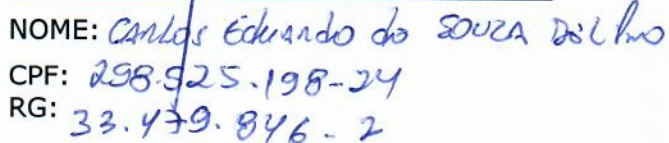 NOME: Carlos Eduardo do Souza Delfino
CPF: 298.525.198-24
RG: 33.479.846-2